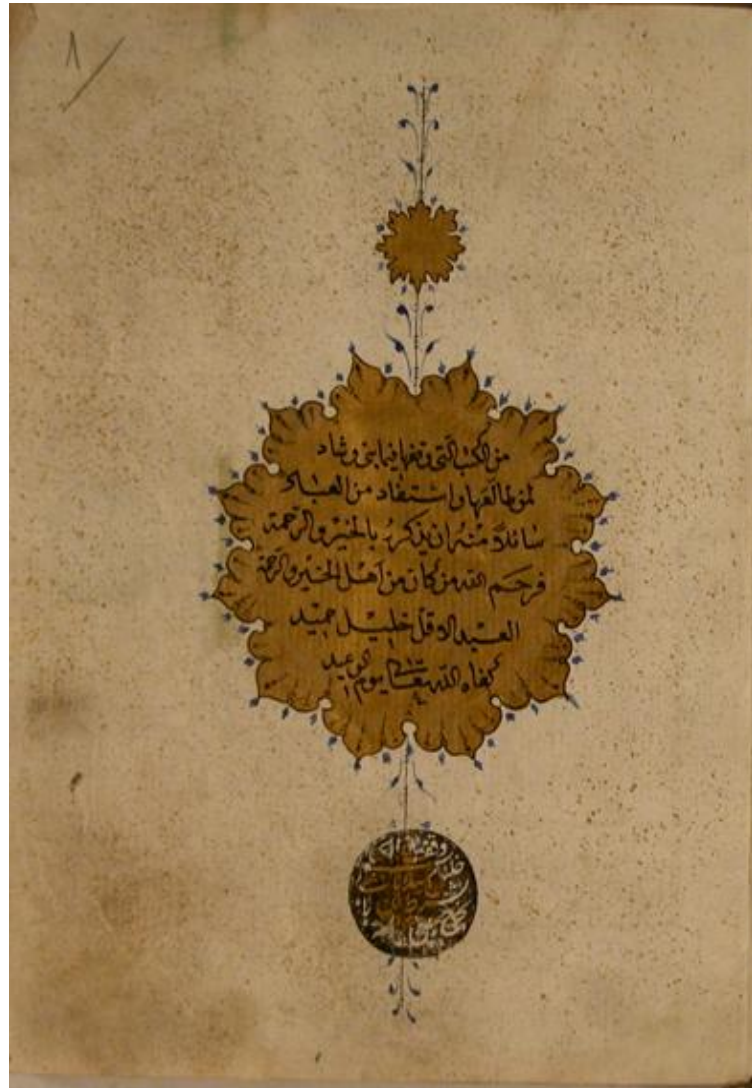 ٨
من الكتب التي وقفها فيما بنى وشاد
لمن طالعها واستفاد من العباد
سائلاً منه ان يذكره بالخير والرحمة
فرحم الله من كان من اهل الخير والرحمة
العبد الاقل خليل حميد
كفاه الله تعالى يوم الوعيد